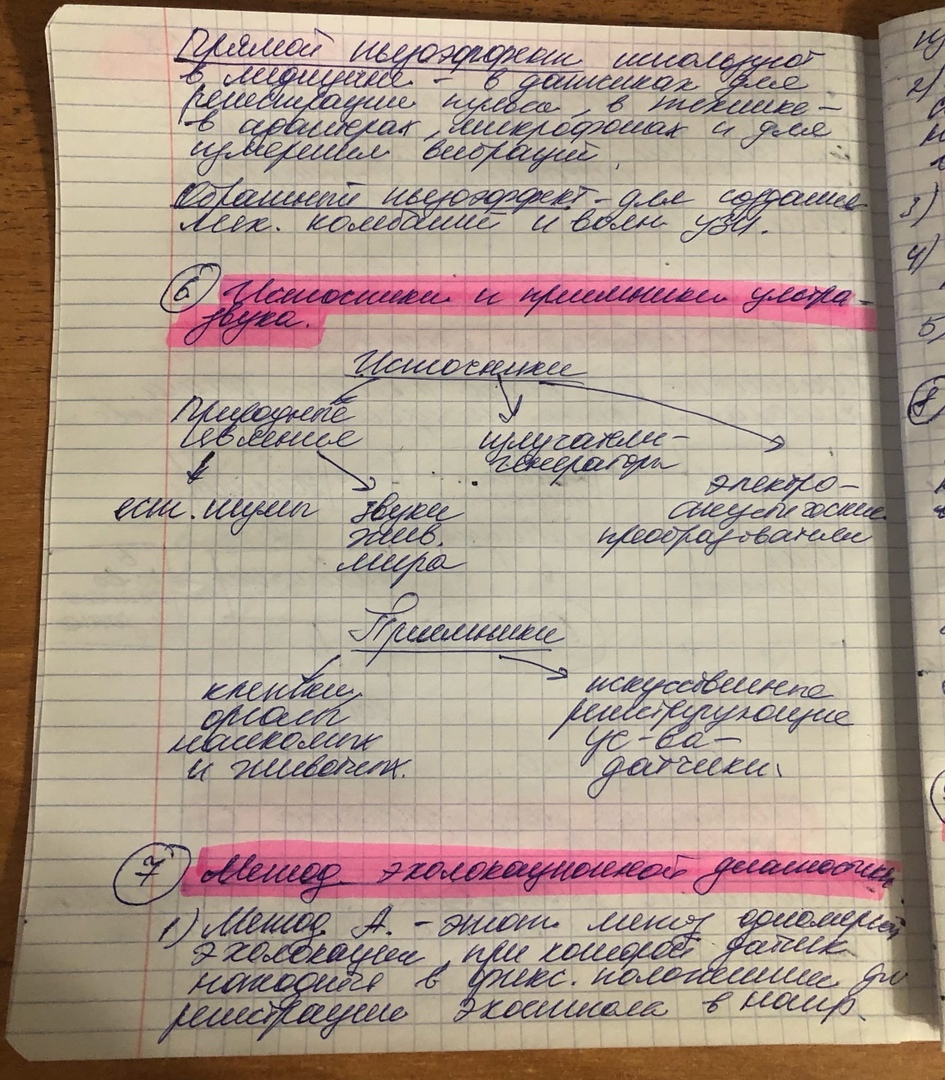 Прямой пьезоэффект используют
в медицине - в датчиках для
регистрации пульса, в технике -
в адаптерах, микрофонах и для
измерения вибраций.
Обратный пьезоэффект - для создания
мех. колебаний и волн УЗИ.
6 Источники и приемники ультра-
звука.
Источники
Природные
явления
излучатели-
генераторы
электро-
акустические
преобразователи
ест. шумы
звуки
жив.
мира
Приемники
клетки,
органы
насекомых
и животных.
искусственные
регистрирующие
ус-ва-
датчики.
7 Метод эхолокационной диагностики
1) Метод А. - этот метод одномерной
эхолокации, при которой датчик
находится в фикс. положении для
регистрации эхосигнала в напр.
2)
3)
4)
5)
8